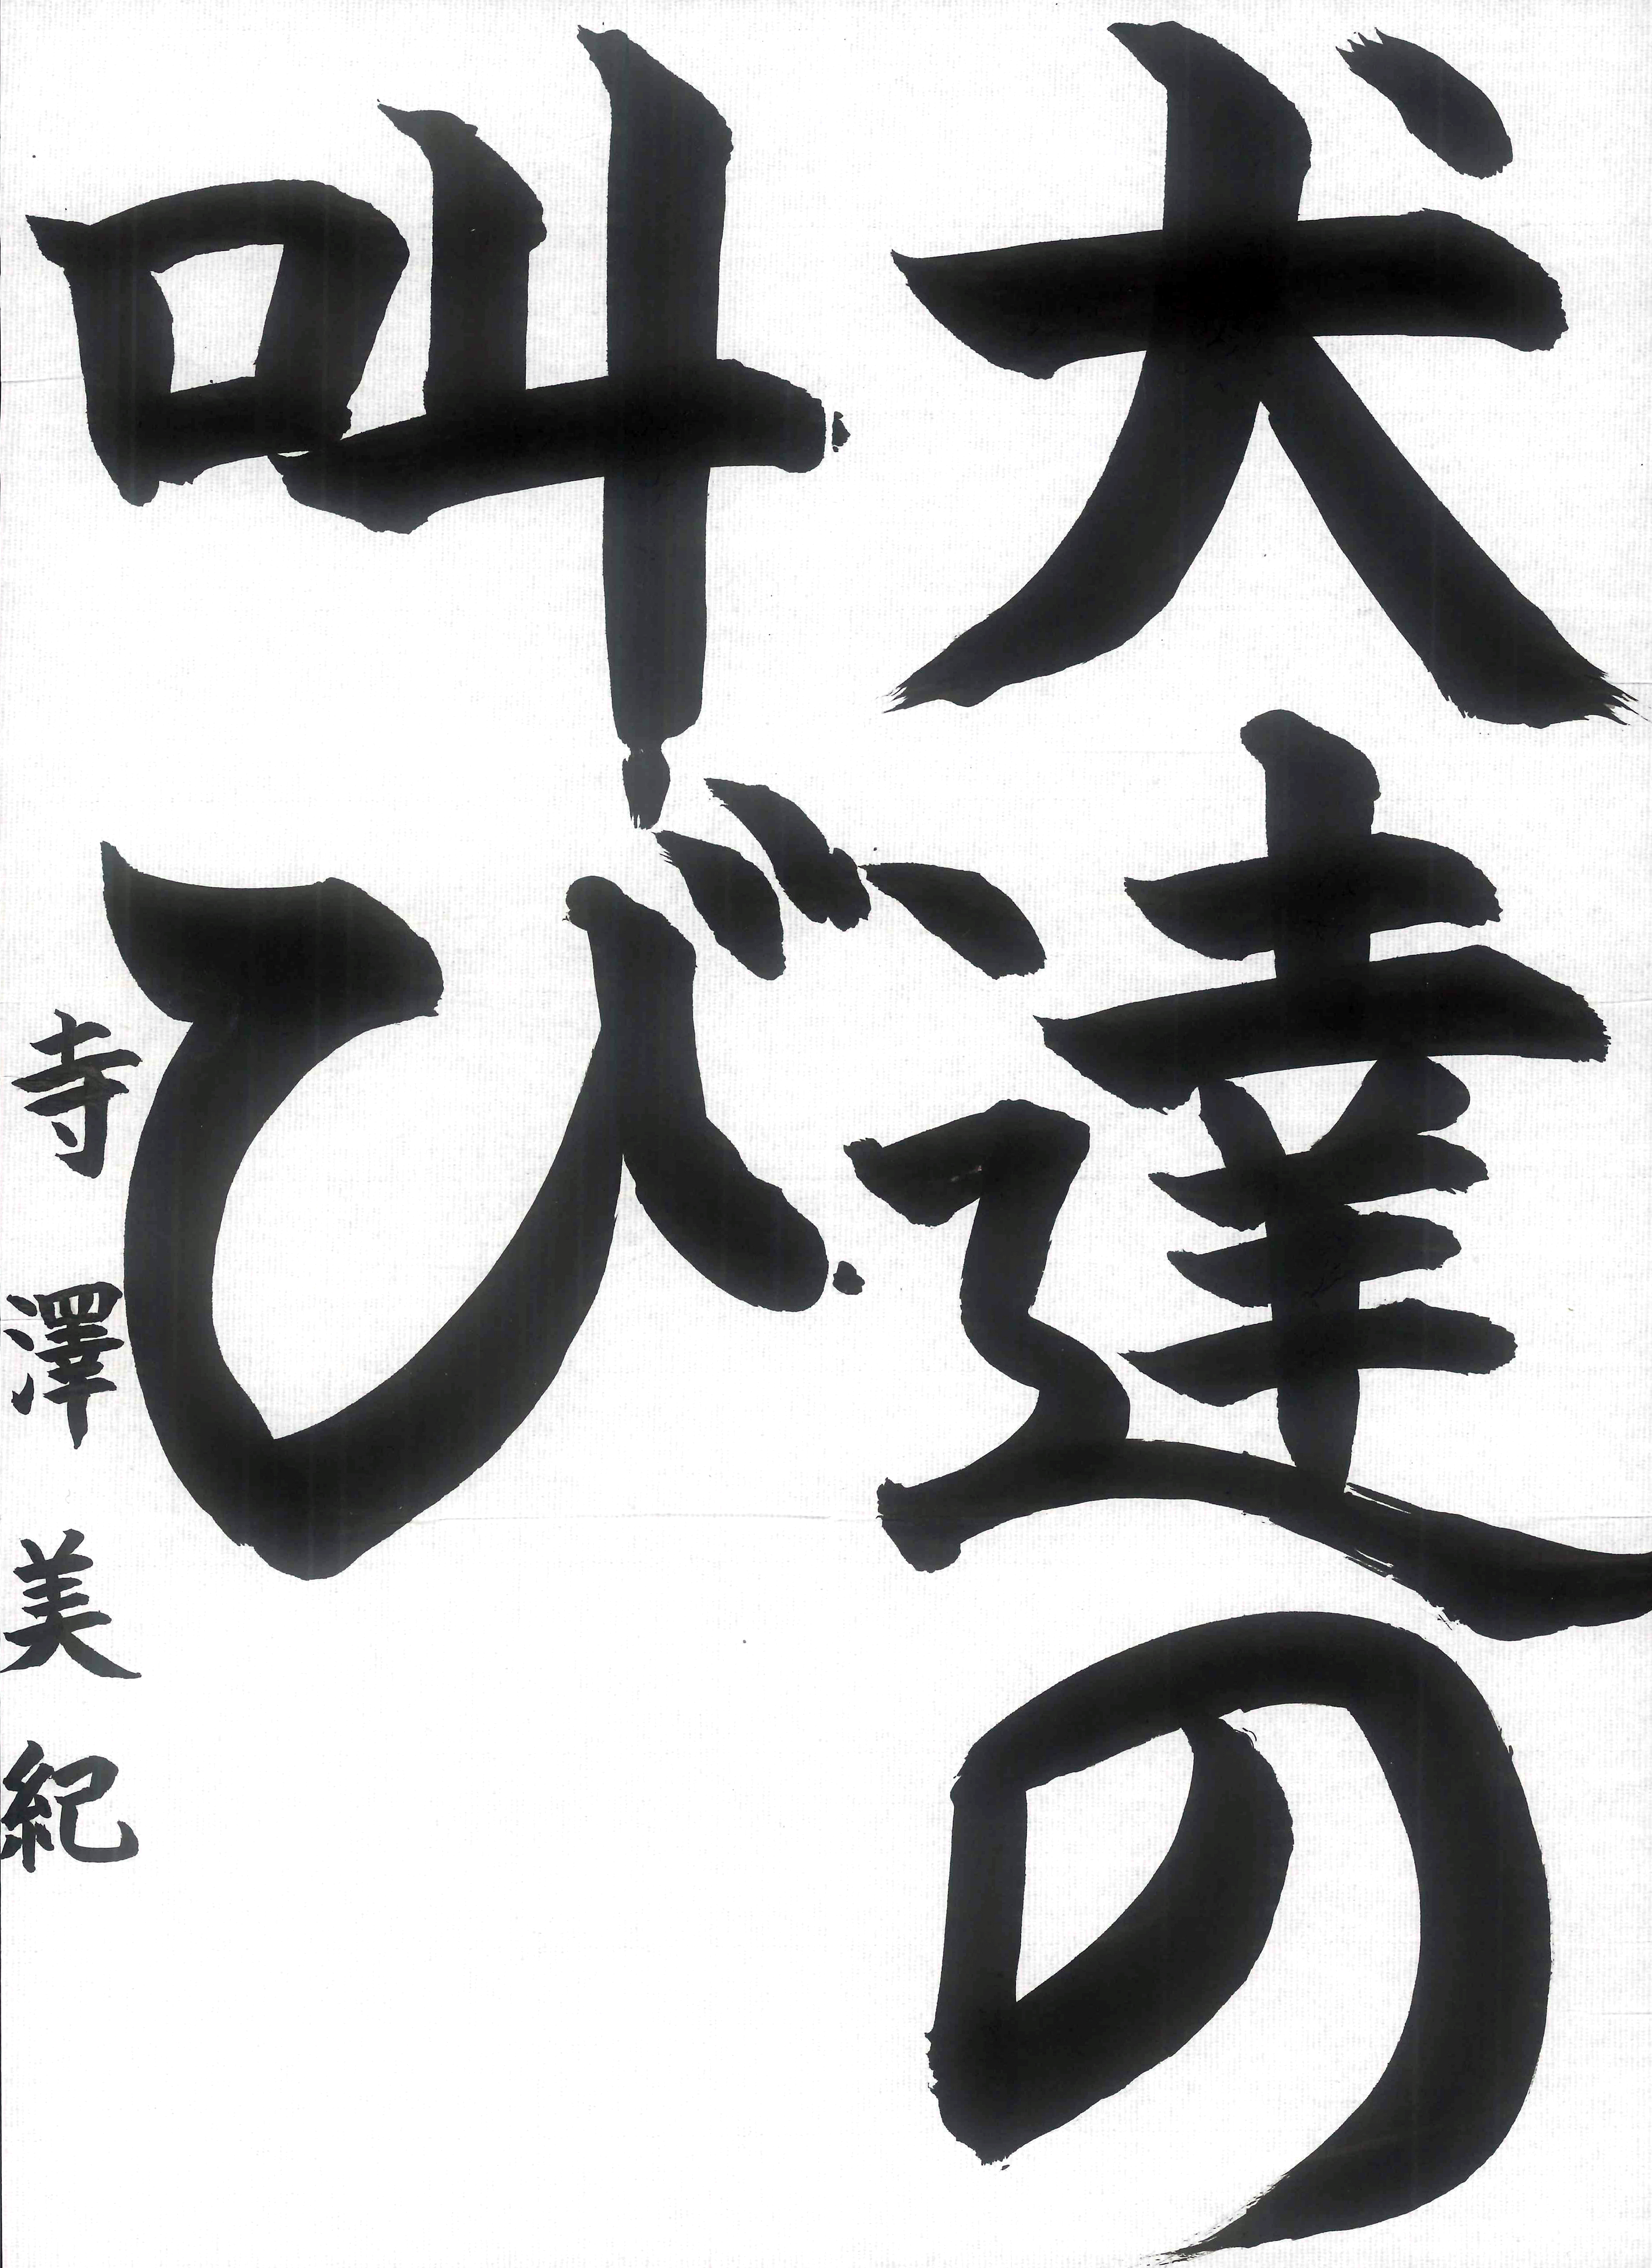 犬達の
叫び
寺澤美紀